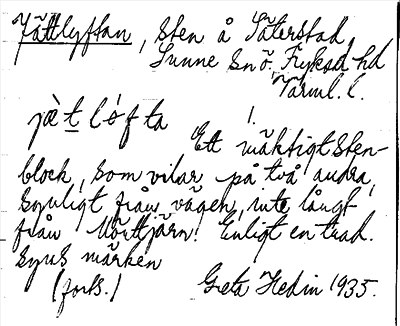 Jättlyftan, Sten å Säterstad,
Sunne sn, Fryksd. hd
Värml. l.
jä̀t lófta
1.
Ett väktigt sten-
block, som vilar på två andra,
synligt från vägen, inte långt
från Mörttjärn. Enligt en trad.
syns märken
(forts.) Greta Hedin 1935.